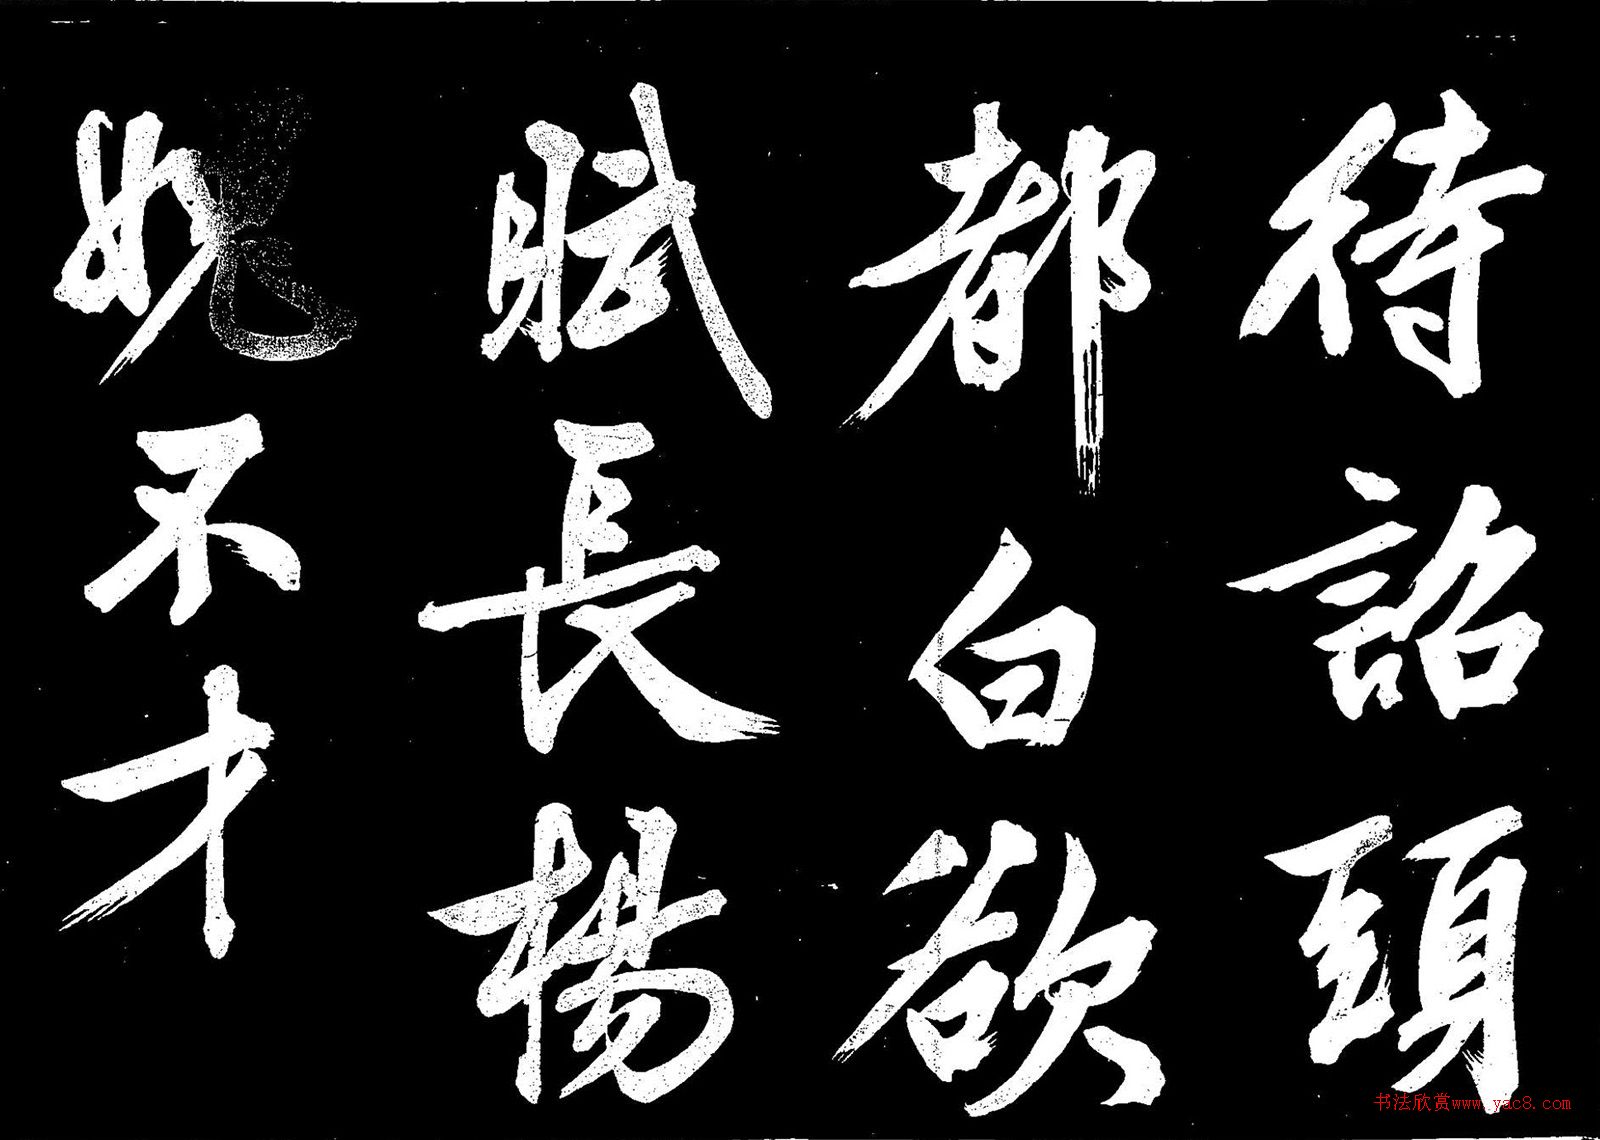 待詔頭
都白欲
賦長楊
媿不才
书法欣赏www.yac8.com